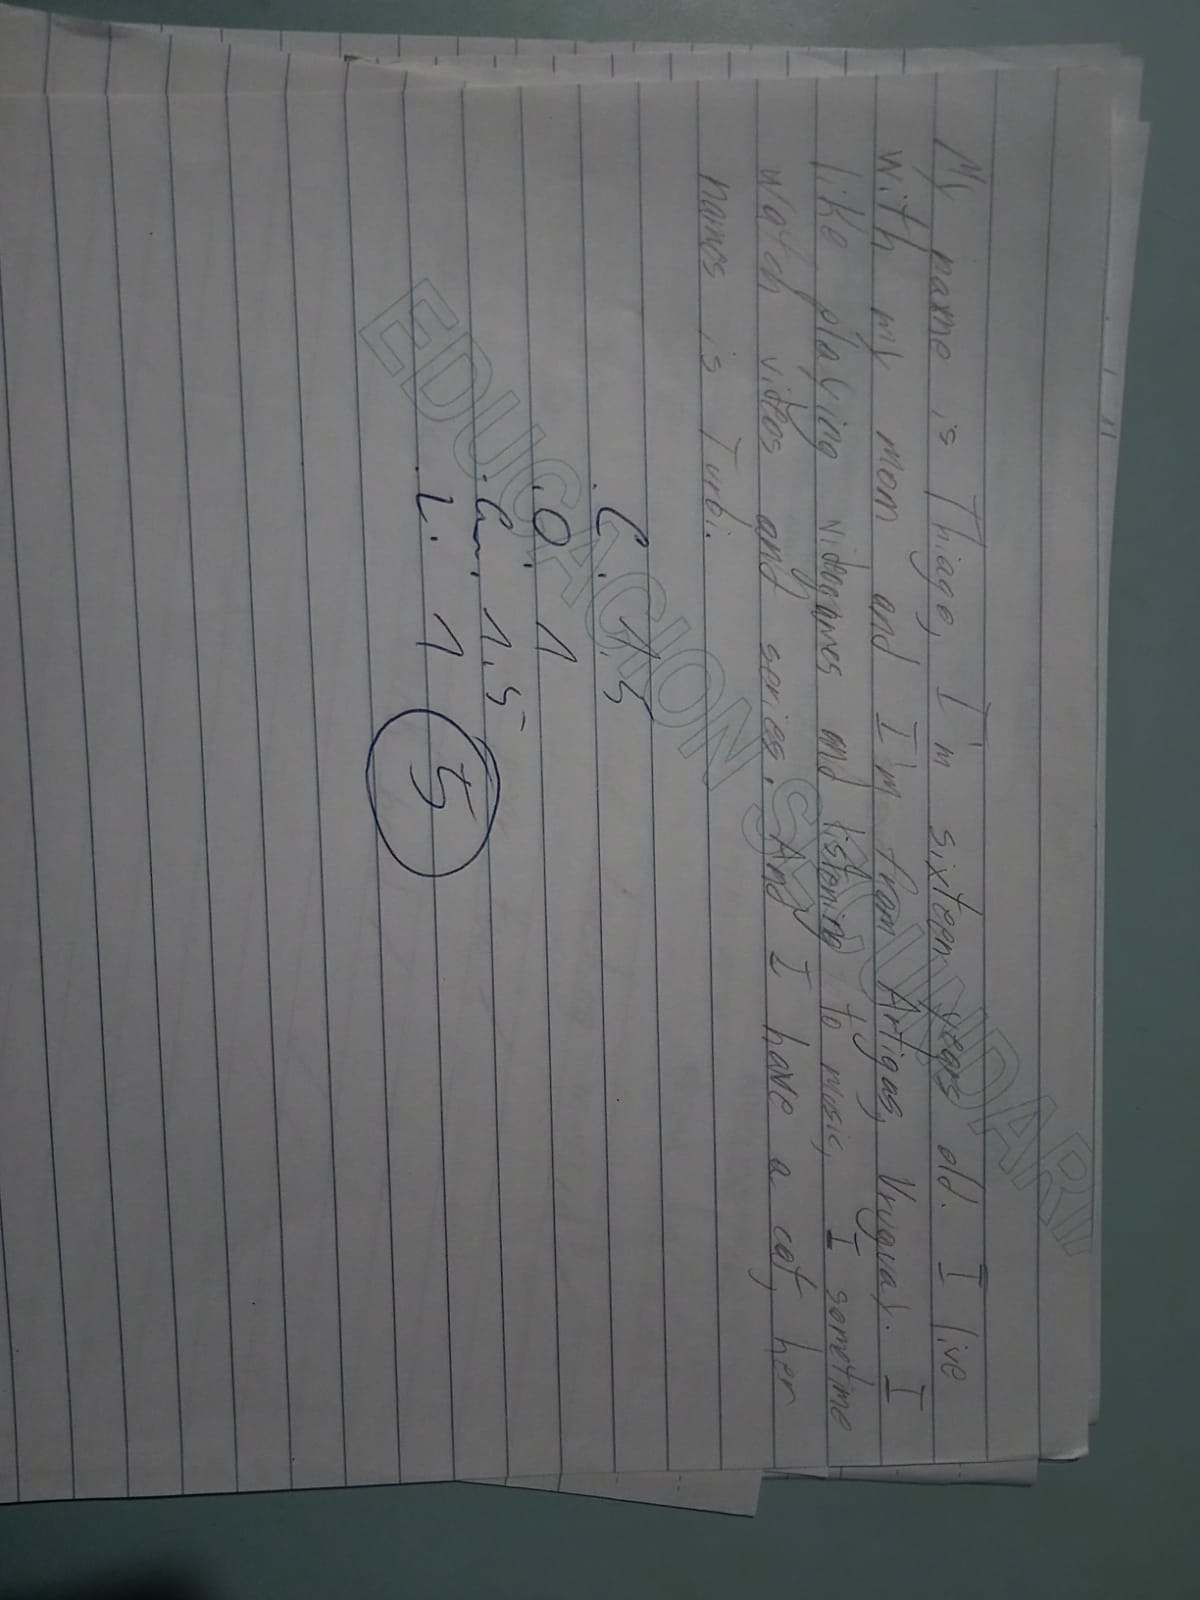 My name is Thiago, I'm sixteen years old. I live
with my mom and I'm from Artigas, Uruguay. I
like playing videogames and listening to music, I sometime
watch videos and series. And I have a cat, her
names is Turbi.
.C. 1,5
.O. 1
.G. 1,5
.L. 1
5
EDUCACION SECUNDARIA